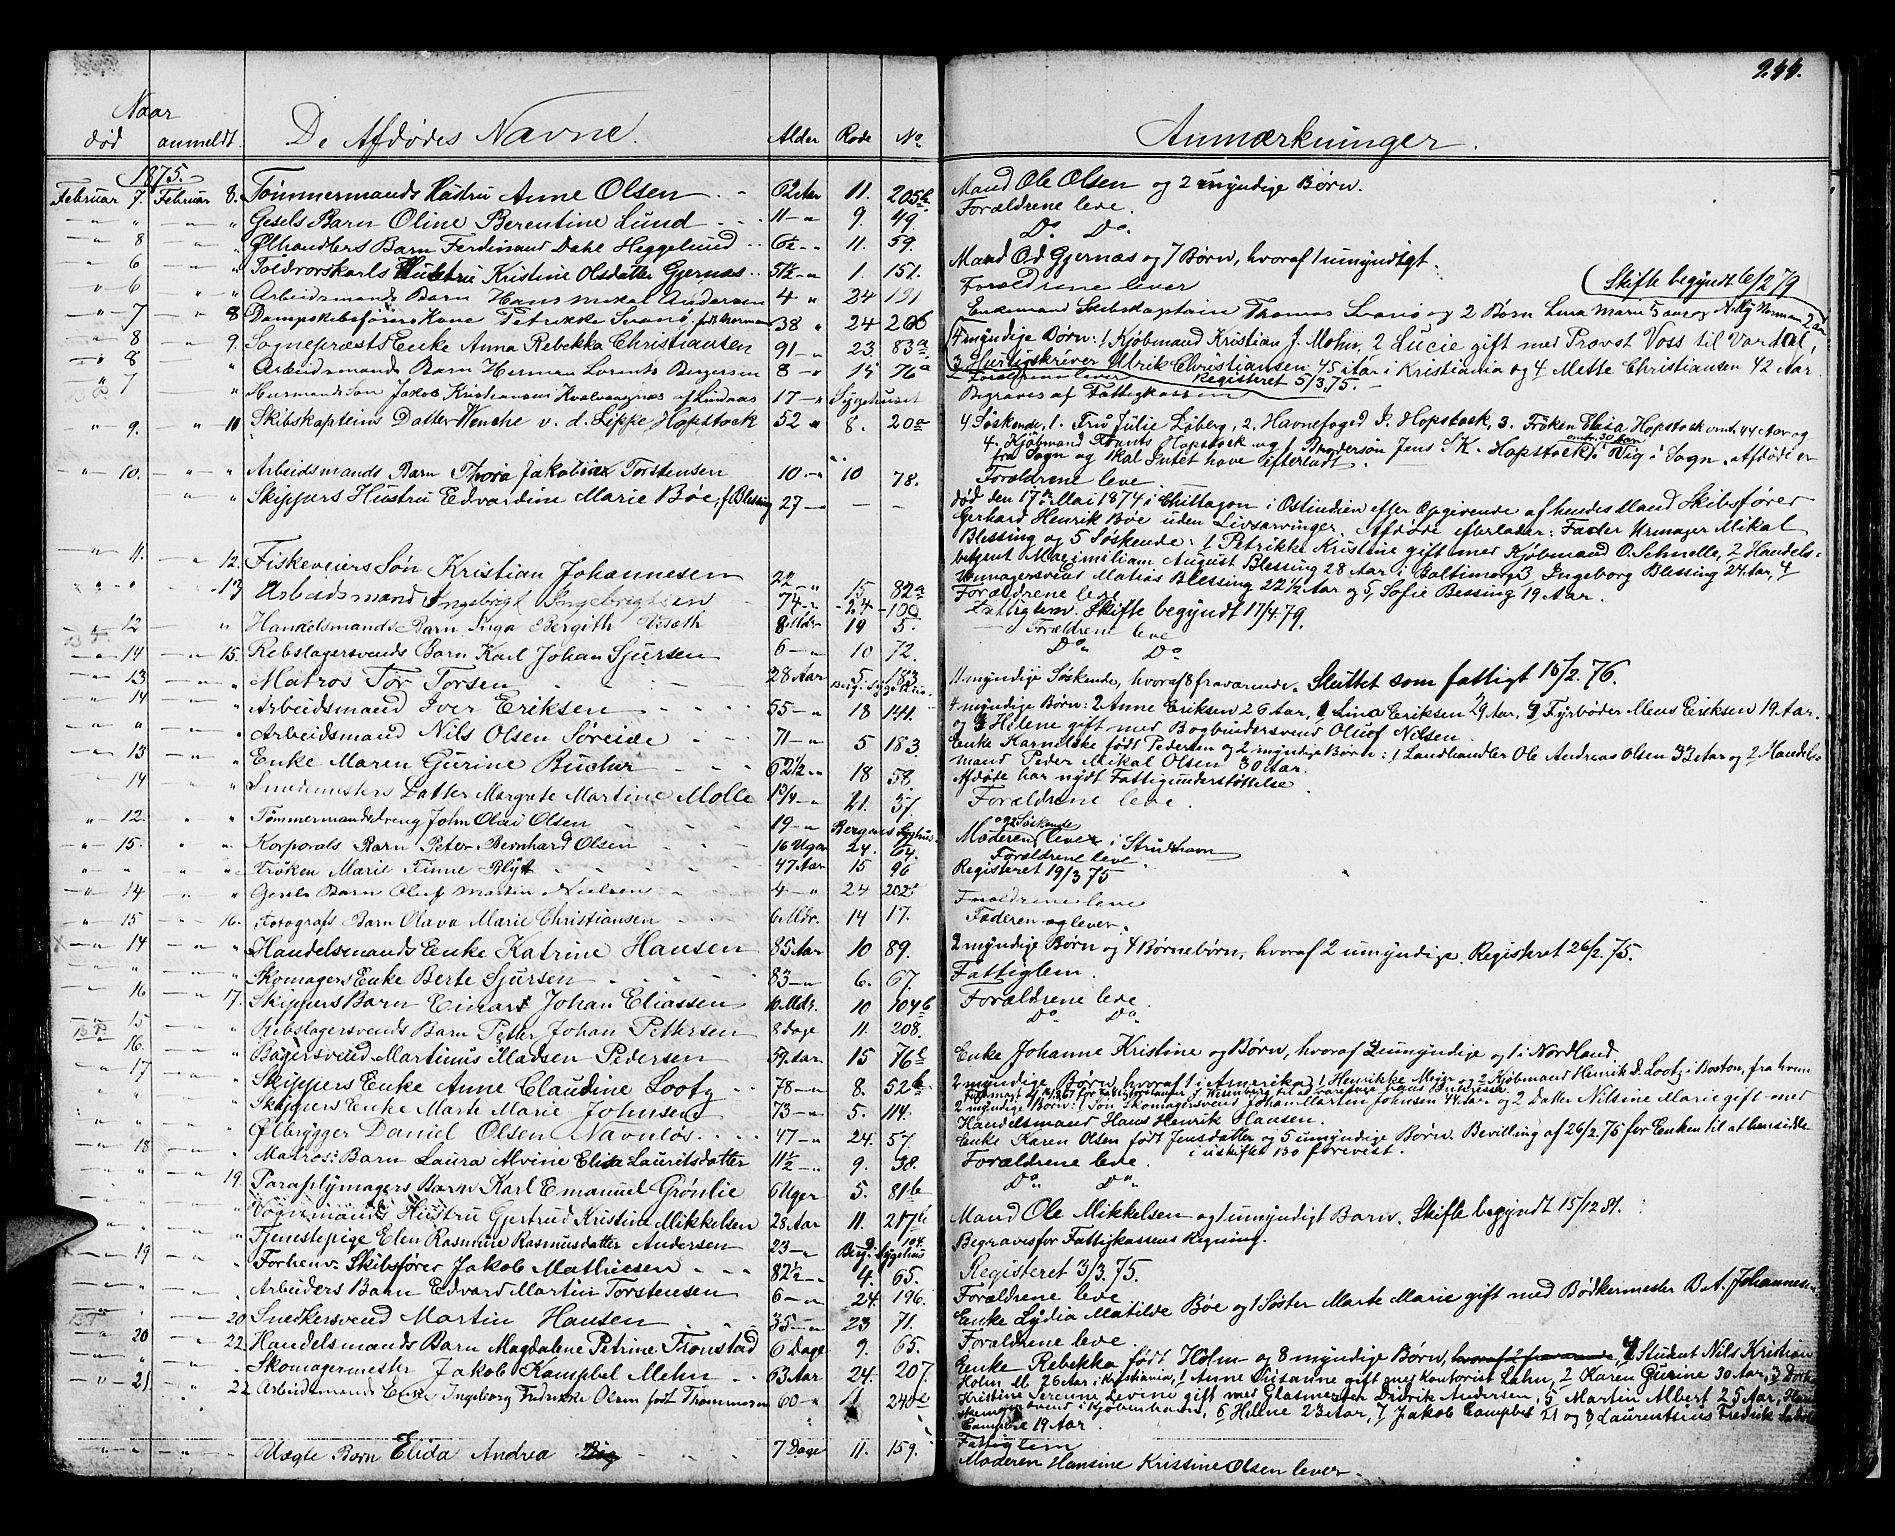 244.
Naar
død anmeldt. De Afdødes Navne. Alder Rode No Anmærkninger.
1875.
Februar 7. Februar 8. Tømmermands Hustru Anne Olsen 62 Aar 11. 205b Mand Ole Olsen og 2 umyndige Børn.
" " Gesels Barn Oline Berentine Lund 11 " 9. 49. Forældrene leve.
8 " Ølhandlers Barn Ferdinand Dahl Heggelund 6½ " 11. 59. Do Do
6 " Toldvorskarls Hustru Kristine Olsdatter Gjernæs 51½ " 1. 151. Mand Od Gjernæs og 7 Børn, hvoraf 1 umyndigt.
6 " Arbeidsmands Barn Hans Mikal Andersen 4 " 24 191 Forældrene lever
Skifte begyndt 6/2 79
7 8 Dampskibsførers Kone Petrikke Svanø, født Norman 38 " 24 206 Enkemand Skibskaptein Thomas Svanø og 2 Børn Lina Marie 5 aar og Nilly Norman 2 aar
8 9. Sognepræsts Enke Anna Rebekka Christiansen 91 " 23. 83a 4 myndige Børn: 1 Kjøbmand Kristian J. Mohn, 2 Lucie gift med Provst Voss til Vardal,
3 Hurtigskriver Ulrik Christiansen 45 Aar i Kristiania og 4 Mette Christiansen 42 Aar.
Registeret 5/3.75.
8 " Arbeidsmands Barn Herman Lorents Bergersen 8 " 15 76a Forældrene leve
7 " Husmands Søn Jakob Kristiansen Kvalvaagnæs af Lindaas 17 " Sygehuset Begraves af Fattigkassen
9. 10 Skibskapteins Datter Wenche v. d. Lippe Hopstock 52 " 8. 20a 4 Søskende, 1. Fru Julie Løberg, 2. Havnefoged J. Hopstock, 3. Frøken Elisa Hopstock omt. 44 Aar og
4. Kjøbmand Frants Hopstock og 1 Brodersøn Jens S.K. Hopstock omtr. 30 Aar i Vig i Sogn. Afdøde er
fra Sogn og skal Intet have efterladt.
10. " Arbeidsmands Barn Thora Jakobine Torstensen 10 " 10 78. Forældrene leve
" Skippers Hustru Edvardine Marie Bøe, f. Blessing 27 " død den 17de Mai 1874 i Chittagon i Ostindien efter Opgivende af hendes Mand Skibsfører
Gerhard Henrik Bøe uden Livsarvinger. Afdøde efterlader: Fader Urmager Mikal
Blessing og 5 Søskende: 1 Petrikke Kristine gift med Kjøbmand O. Schnelle, 2 Handels-
betjent Maximiliam August Blessing 28 Aar i Baltimore, 3 Ingeborg Blessing 24 Aar, 4
Urmagersvend Matias Blessing 22½ Aar og 5, Sofie Bessing 19 Aar.
11. 12. Fiskeveiers Søn Kristian Johannesen 22 " 15 82a Forældrene leve
" 13 Arbeidsmand Ingebrigt Ingebrigtsen 74 " 24 100 Fattiglem. Skifte begyndt 17/4.79.
12 " Handelsmands Barn Inga Bergith Aasæth 8 Mdr 19 5. Forældrene leve
14 15. Rebslagersvends Barn Karl Johan Sjursen 6 " 10 72. Do Do
13 " Matros Tor Torsen 28 Aar 5. 183 11 myndige Søskende, hvoraf 8 fraværende. Sluttet som fattigt 18/2.76.
14 " Arbeidsmand Iver Eriksen 55 " 18 141. 4 myndige Børn: 2 Anne Eriksen 26 Aar, 1 Lina Eriksen 29 Aar, 4 Fyrbøder Mens Eriksen 19 Aar.
og 3 Helene gift med Bogbindersvend Oluf Nilsen.
" Arbeidsmand Nils Olsen Søreide 71 " 5 183 Enke Karneliske født Pedersen og 2 myndige Børn: 1 Landhandler Ole Andreas Olsen 33 Aar og 2 Handels-
mand Peder Mikal Olsen 30 Aar.
13 " Enke Maren Gurine Bucher 62½ " 18 58. Afdøde har nydt Fattigunderstøttelse.
14 " Smedmesters Datter Margrete Martine Molle 1 3/4 " 21. 37. Forældrene leve.
12. " Tømmermandsdreng John Olai Olsen 19 " Bergens Sygehus Moderen og 2 Søskende lever i Strudshavn
15. " Korporals Barn Peter Bernhard Olsen 16 Uger 24. 64. Forældrene leve
" Frøken Marie Finne Blytt 47 Aar 15 96 Registeret 19/3 75
14 " Gesels Barn Oluf Martin Nielsen 4 " 24 202 Forældrene leve
15 16. Fotografs Barn Olava Marie Christiansen 6 Mdr. 14 17. Faderen og lever.
14 " Handelsmands Enke Katrine Hansen 85 Aar 10 89. 2 myndige Børn og 4 Børnebørn, hvoraf 2 umyndige. Registeret 26/2.75.
" Skomagers Enke Berte Sjursen 83 " 6. 67. Fattiglem.
16 17. Skippers Barn Einar Johan Eliassen 10 Mdr. 10 104b Forældrene leve
15 " Rebslagersvends Barn Petter Johan Pettersen 8 Dage 11. 208. Do Do
16. " Bagersvend Martinus Madsen Pedersen 59 Aar 15 76b Enke Johanne Kristine og Børn, hvoraf 2 umyndige og 1 i Nordland.
17 " Skippers Enke Anne Claudine Lootz 78 " 8. 52b 2 myndige Børn, hvoraf 1 i Amerika, 1 Henrikke Meyer og 2 Kjøbmand Henrik D. Lootz i Boston, fra hvem
" Skippers Enke Marte Marie Johnsen 73 " 5. 114. 2 myndige Børn: 1 Søn Skomagersvend Johan Martin Johnsen 44 Aar og 2 Datter Nilsine Marie gift med
Handelsmand Hans Henrik Hansen.
" Ølbrygger Daniel Olsen Navnløs 47 " 24. 57 Enke Karen Olsen født Jensdatter og 5 umyndige Børn. Bevilling af 26/2.75 for Enken til at hensidde
i uskiftet Bo forevist.
18 " Matros: Barn Laura Alvine Elise Lauritsdatter 11½ " 9. 38. Forældrene leve
19. Paraplymagers Barn Karl Emanuel Grønlie 6 Uger 5. 81b Do Do
" Vognmands Hustru Gjertrud Kristine Mikkelsen 28 Aar 11. 217b Mand Ole Mikkelsen og 1 umyndigt Barn. Skifte begyndt 15/12 81.
" Tjenstepige Elen Rasmine Rasmusdatter Andersen 23 " Berg. Sygehus Begraves for Fattigkassens Regning.
19 " Forhenv. Skibsfører Jakob Mathiesen 82½ " 4. 65. Registeret 3/3.75.
" Arbeiders Barn Edvard Martin Torstensen 6 " 24. 196. Forældrene leve
20 Snedkersvend Martin Hansen 35 " 23 71. Enke Lydia Matilde Bøe og 1 Søster Marte Marie gift med Bødkermester B. A. Johannesn.
20 22. Handelsmands Barn Magdalene Petrine Tronstad 6 Dage 9. 65. Forældrene leve
" Skomagermester Jakob Kamphel Mehn 63 Aar 24. 207. Enke Rebekka født Holm og 8 myndige Børn, hvoraf 2 fraværende, 4 Student Nils Kristian
Holm M. 26 Aar i Kristiania, 1 Anne Susanne gift med Kontorist Lahn, 2 Karen Gurine 30 Aar, 3 Dorthe
Kristine Serenne Levine gift med Glasmester Didrik Andersen, 5 Martin Albert 25 Aar,
i Kjøbenhavn, 6 Helene 23 Aar, 7 Jakob Camphel 21 og 8 Laurentsius Fredrik
Camphel 19 Aar
21 22 Arbeidsmands Enke Ingeborg Fredrikke Olsen født Thommesen 60 " 11. 240b Fattiglem
" Uægte Barn Elida Andrea 7 Dage 11. 159. Moderen Hansine Kristine Olsen lever.